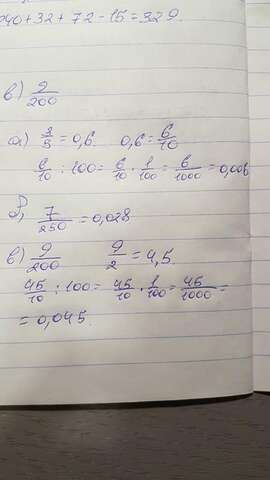 240+32+72-15=329.
в) 9/200
а) 3/5 = 0,6. 0,6 = 6/10
6/10 : 100 = 6/10 · 1/100 = 6/1000 = 0,006
б) 7/250 = 0,028
в) 9/200 9/2 = 4,5.
45/10 : 100 = 45/10 · 1/100 = 45/1000 =
= 0,045.